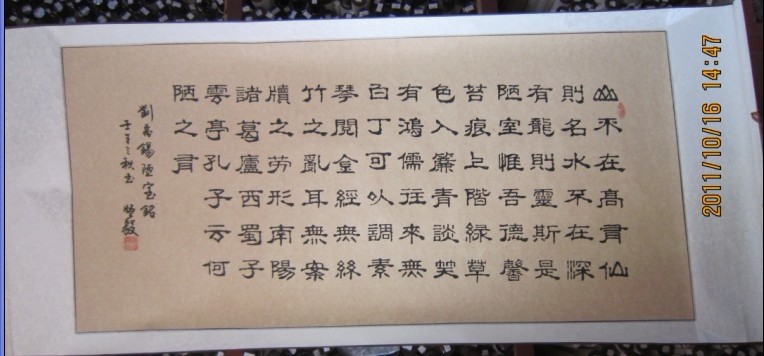 山不在高有仙
則名水不在深
有龍則靈斯是
陋室惟吾德馨
苔痕上階緑草
色入簾青談笑
有鴻儒往來無
白丁可以調素
琴閱金經無絲
竹之亂耳無案
牘之勞形南陽
諸葛廬西蜀子
雲亭孔子云何
陋之有
劉禹錫陋室銘
之秋書
2011/10/16 14:47